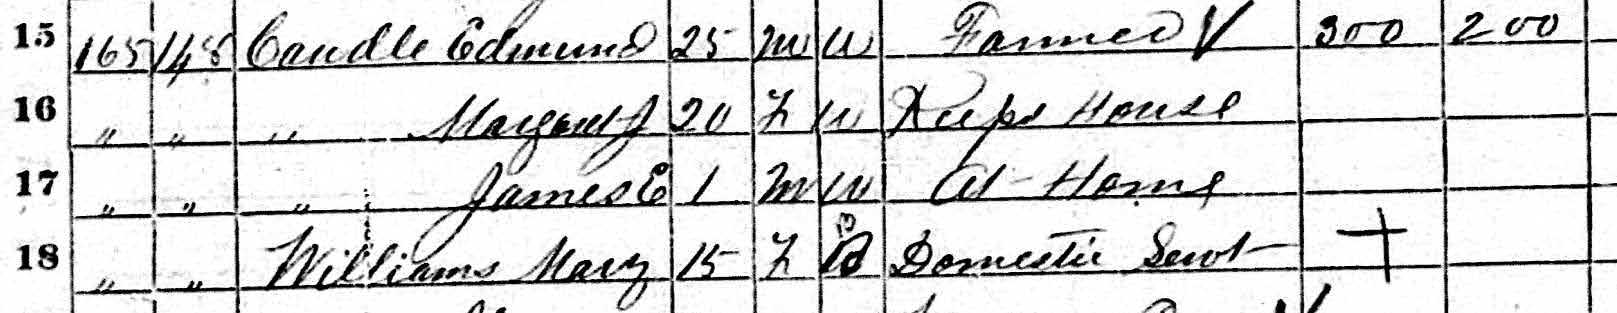 15 165 148 Caudle Edmund 25 M W Farmer V 300 200
16 " " " Margaret J 20 F W Keeps House
17 " " " James E 1 M W At Home
18 " " Williams Mary 15 F B Domestic Servt